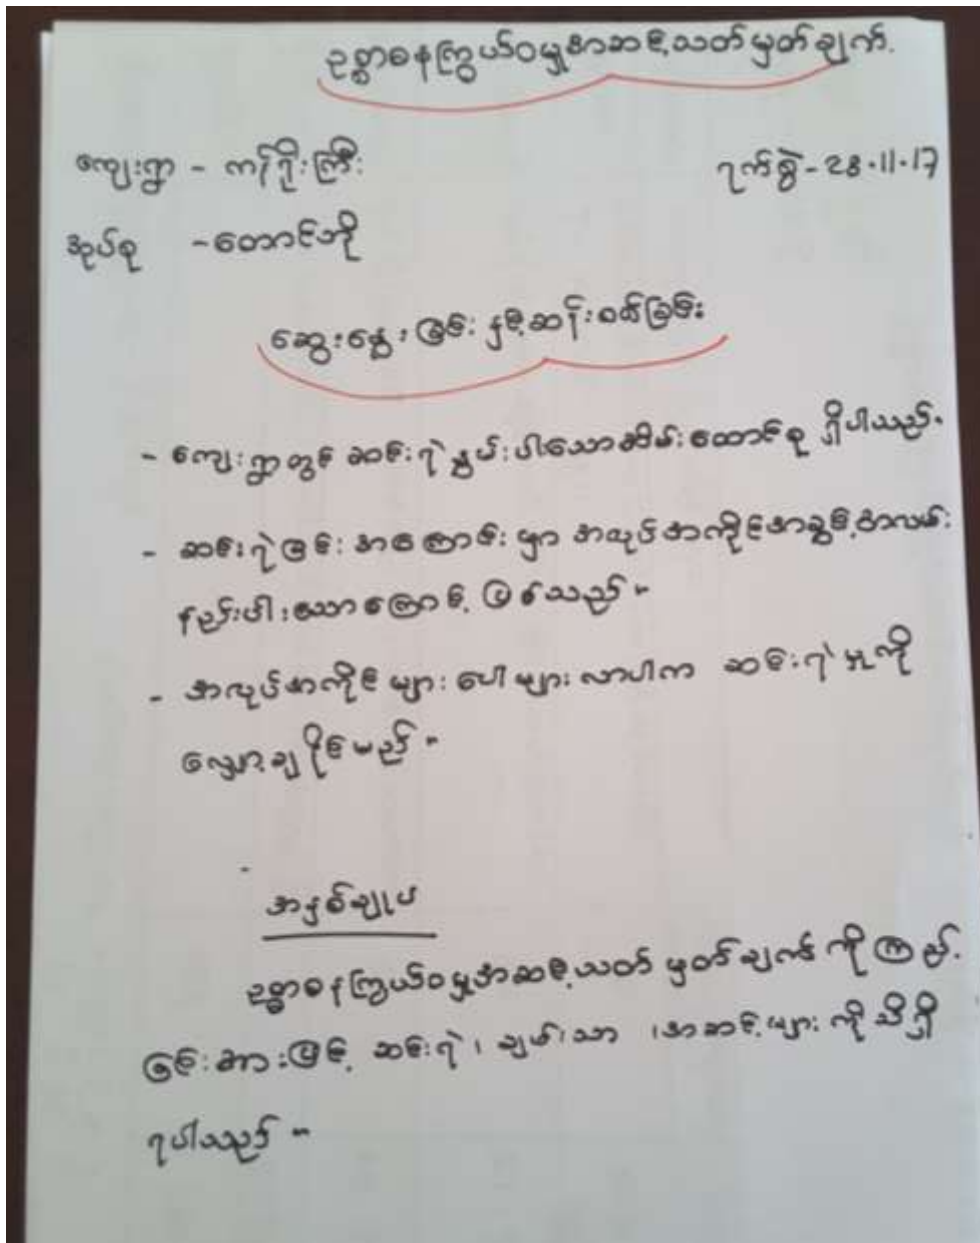 ဥစ္စာဓနကြွယ်ဝမှုအဆင့်သတ်မှတ်ချက်.
ကျေးရွာ - ကင်ဂိုးကြီး ရက်စွဲ - 28.11.17
အုပ်စု - တောင်ဘို
ဆွေးနွေးခြင်းနှင့်ဆန်းစစ်ခြင်း
- ကျေးရွာတွင် ဆင်းရဲနွမ်းပါးသောအိမ်ထောင်စု ရှိပါသည်။
- ဆင်းရဲခြင်း အကြောင်းမှာ အလုပ်အကိုင်အခွင့်အလမ်း
နည်းပါးသောကြောင့် ဖြစ်သည်။
- အလုပ်အကိုင်များ ပေါများလာပါက ဆင်းရဲမှုကို
လျှော့ချနိုင်မည်။
အနှစ်ချုပ်
ဥစ္စာဓနကြွယ်ဝမှုအဆင့်သတ်မှတ်ချက်ကိုကြည့်
ခြင်းအားဖြင့် ဆင်းရဲ၊ ချမ်းသာ၊ အဆင့်များကိုသိရှိ
ရပါသည်။